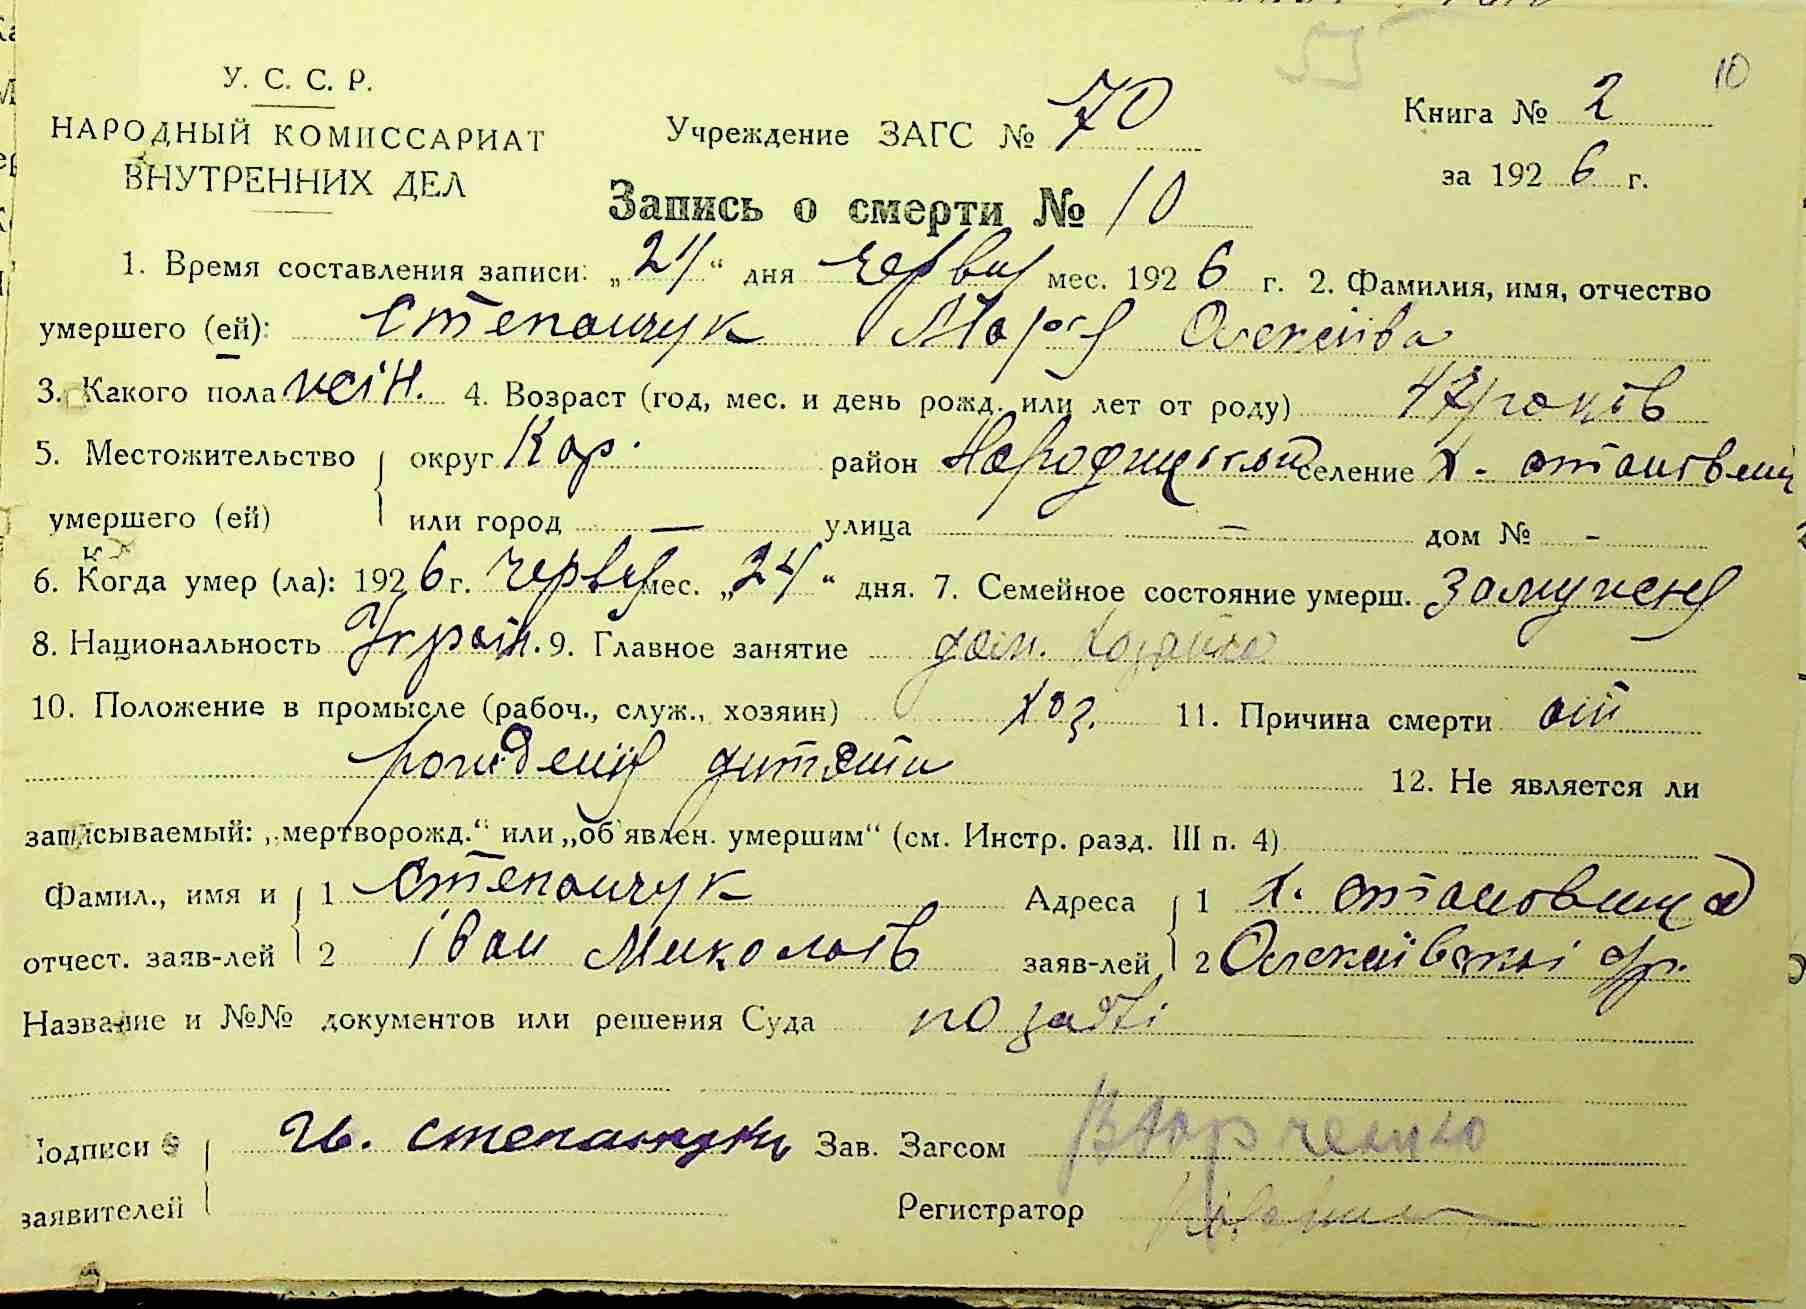 10
У. С. С. Р.
НАРОДНЫЙ КОМИССАРИАТ
ВНУТРЕННИХ ДЕЛ
Учреждение ЗАГС № 70
Книга № 2
за 1926 г.
Запись о смерти № 10
1. Время составления записи: „24“ дня червня мес. 1926 г. 2. Фамилия, имя, отчество
умершего (ей): Степанчук Марія Олексіїва
3. Какого пола жін. 4. Возраст (год, мес. и день рожд. или лет от роду) 47 років
5. Местожительство округ Кор. район Народицький селение х. становищ
умершего (ей) или город — улица — дом № -
6. Когда умер (ла): 1926 г. червня мес. „24“ дня. 7. Семейное состояние умерш. замужня
8. Национальность Україн. 9. Главное занятие дом. хозяйка
10. Положение в промысле (рабоч., служ., хозяин) хоз. 11. Причина смерти від
рождения дитяти 12. Не является ли
записываемый: „мертворожд.“ или „об'явлен. умершим“ (см. Инстр. разд. III п. 4)
Фамил., имя и 1 Степанчук Адреса 1 х. становища
отчест. заяв-лей 2 Іван Миколаїв заяв-лей 2 Олексіївської
Название и №№ документов или решения Суда по заяві
Подписи Ив. Степанчук Зав. Загсом
заявителей Регистратор